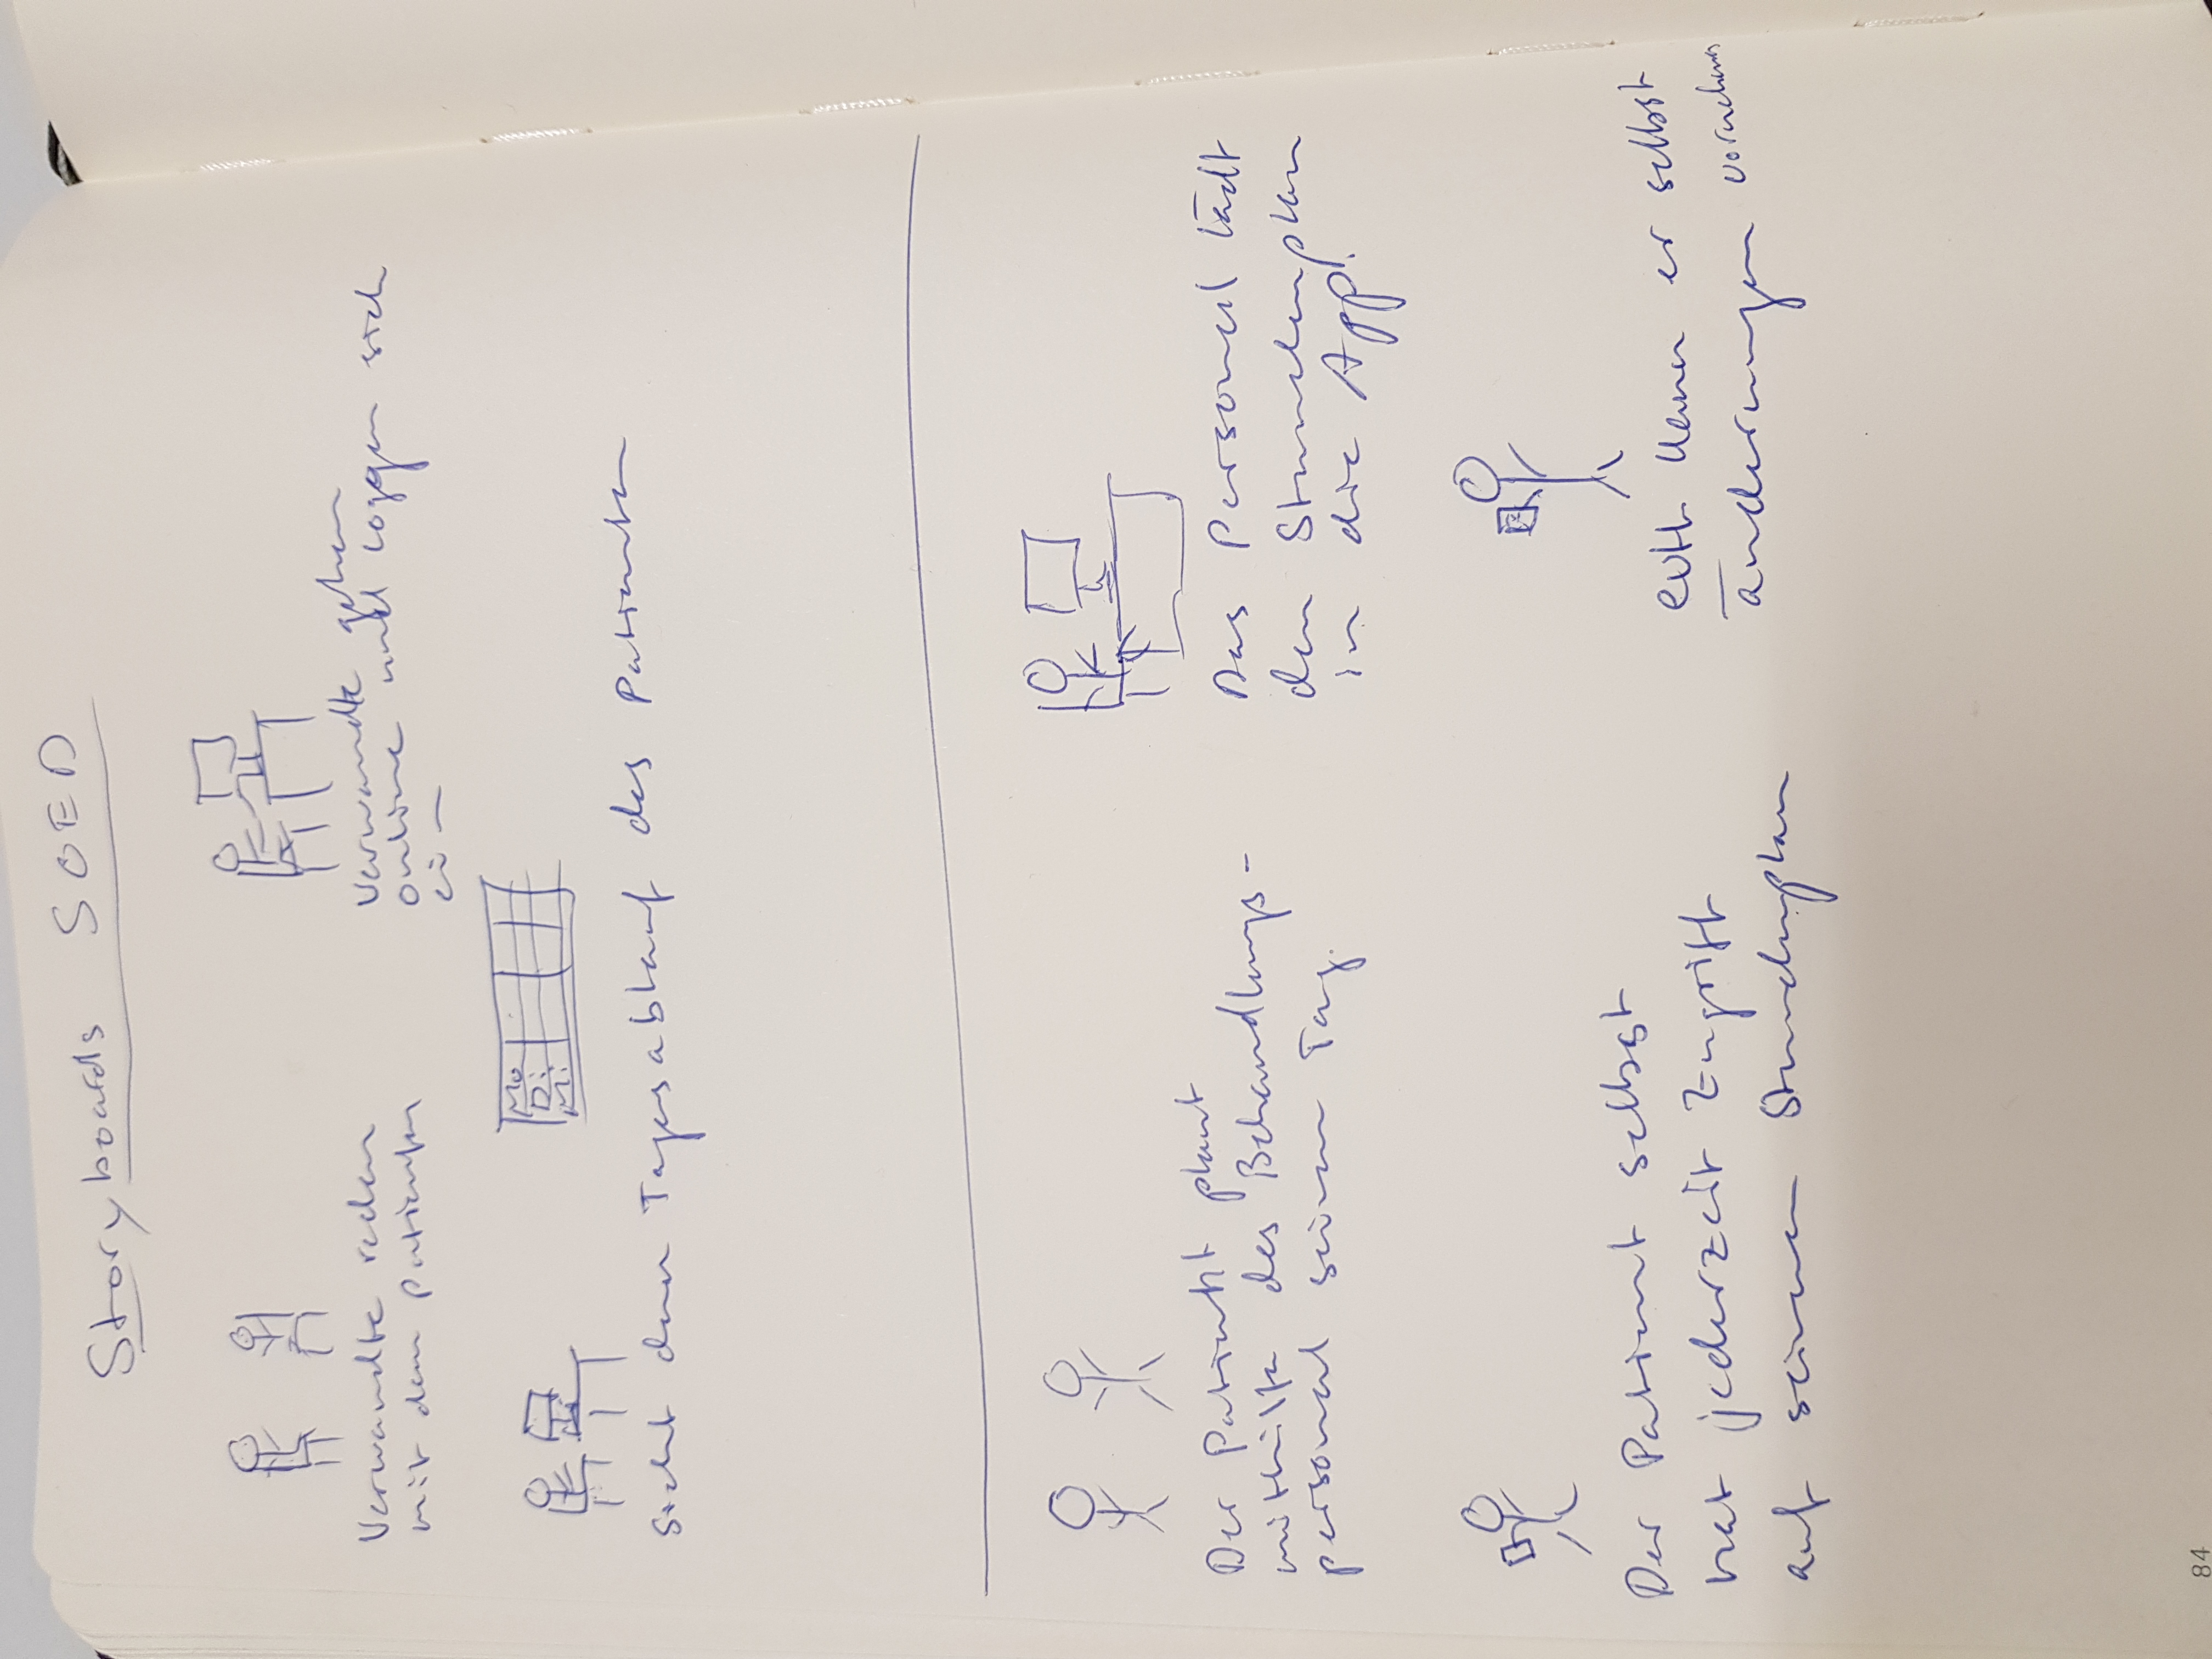 Storyboards SOED
Verwandte reden
mit dem Patienten
Verwandte gehen
online und loggen sich
ein
Mo
Di
Mi
Sieht den Tagesablauf des Patienten
Der Patient plant
mithilfe des Behandlungs-
personal seinen Tag.
Das Personal lädt
den Stundenplan
in die App.
Der Patient selbst
hat jederzeit Zugriff
auf seinen Stundenplan
evtl. kann er selbst
änderungen vornehmen
84